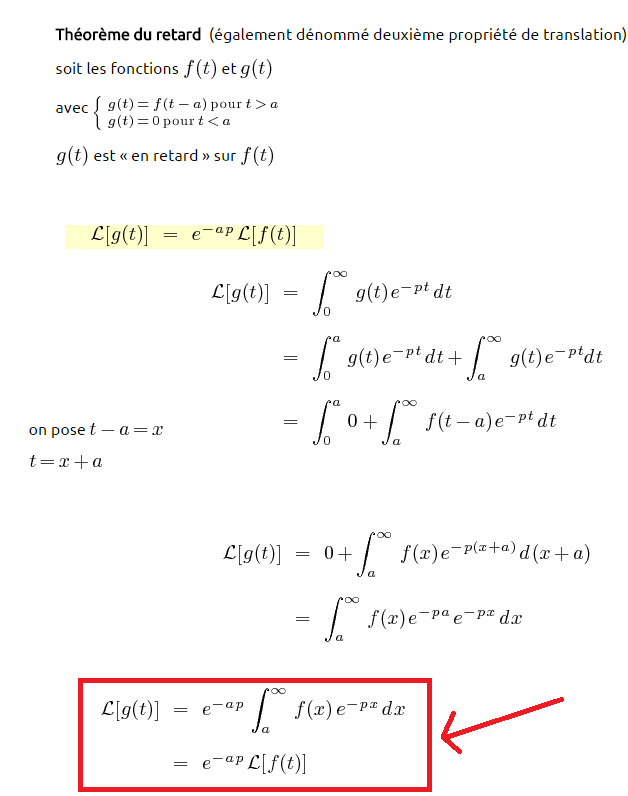 Théorème du retard (également dénommé deuxième propriété de translation)
soit les fonctions f(t) et g(t)
avec { g(t) = f(t − a) pour t > a
g(t) = 0 pour t < a
g(t) est « en retard » sur f(t)
ℒ[g(t)] = e^{−ap} ℒ[f(t)]
ℒ[g(t)] = ∫_0^∞ g(t) e^{−pt} dt
= ∫_0^a g(t) e^{−pt} dt + ∫_a^∞ g(t) e^{−pt} dt
= ∫_0^a 0 + ∫_a^∞ f(t − a) e^{−pt} dt
on pose t − a = x
t = x + a
ℒ[g(t)] = 0 + ∫_a^∞ f(x) e^{−p(x+a)} d(x + a)
= ∫_a^∞ f(x) e^{−pa} e^{−px} dx
ℒ[g(t)] = e^{−ap} ∫_a^∞ f(x) e^{−px} dx
= e^{−ap} ℒ[f(t)]